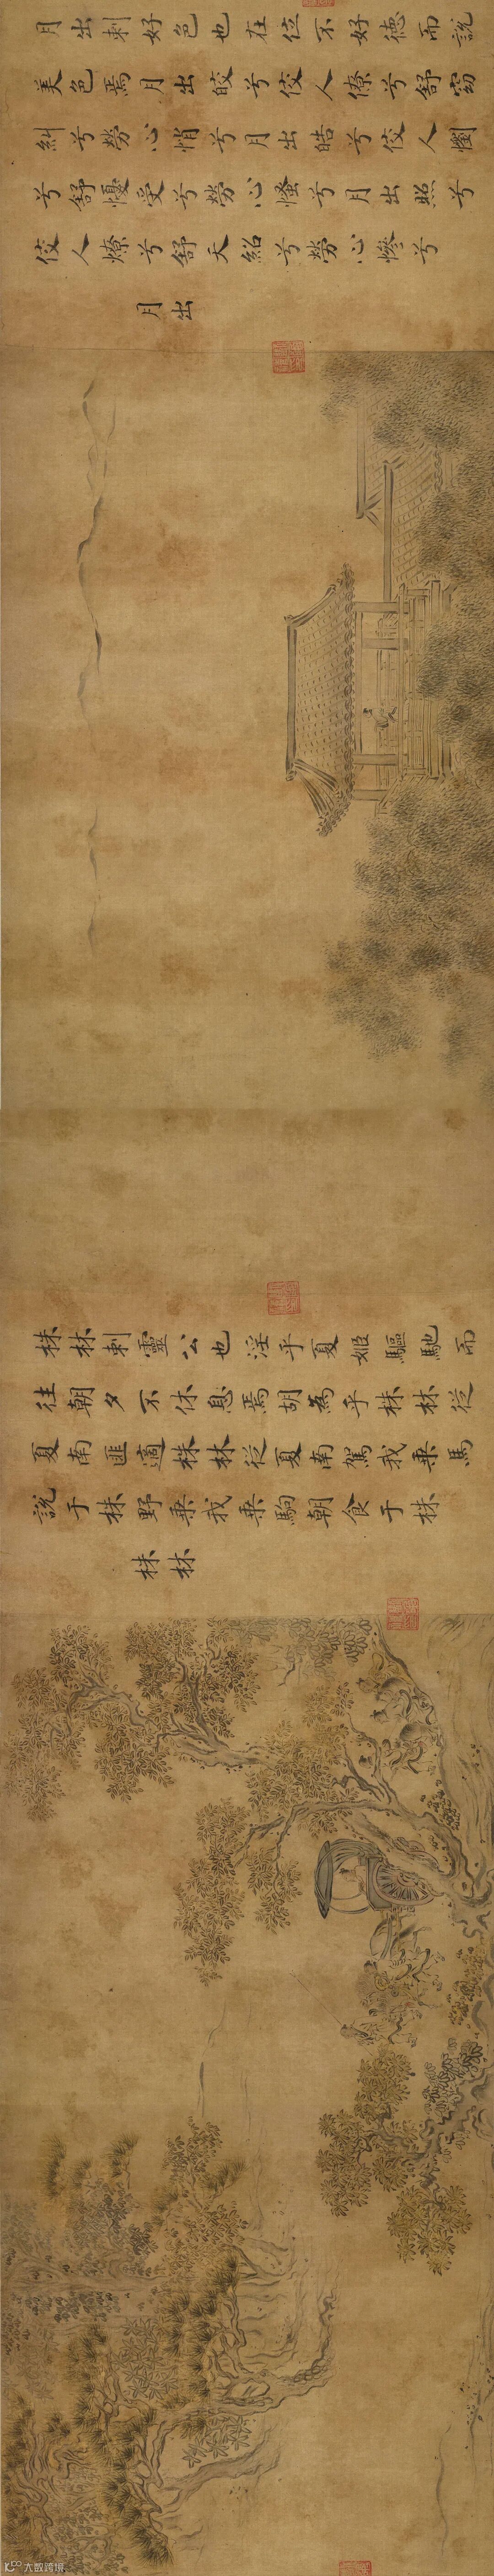 月出刺好色也在位不好德而說
美色焉月出皎兮佼人僚兮舒窈
糾兮勞心悄兮月出皓兮佼人懰
兮舒懮受兮勞心慅兮月出照兮
佼人燎兮舒夭紹兮勞心慘兮
月出
株林刺靈公也淫乎夏姬驅馳而
往朝夕不休息焉胡為乎株林從
夏南匪適株林從夏南駕我乘馬
說于株野乘我乘駒朝食于株
株林
大数跨境